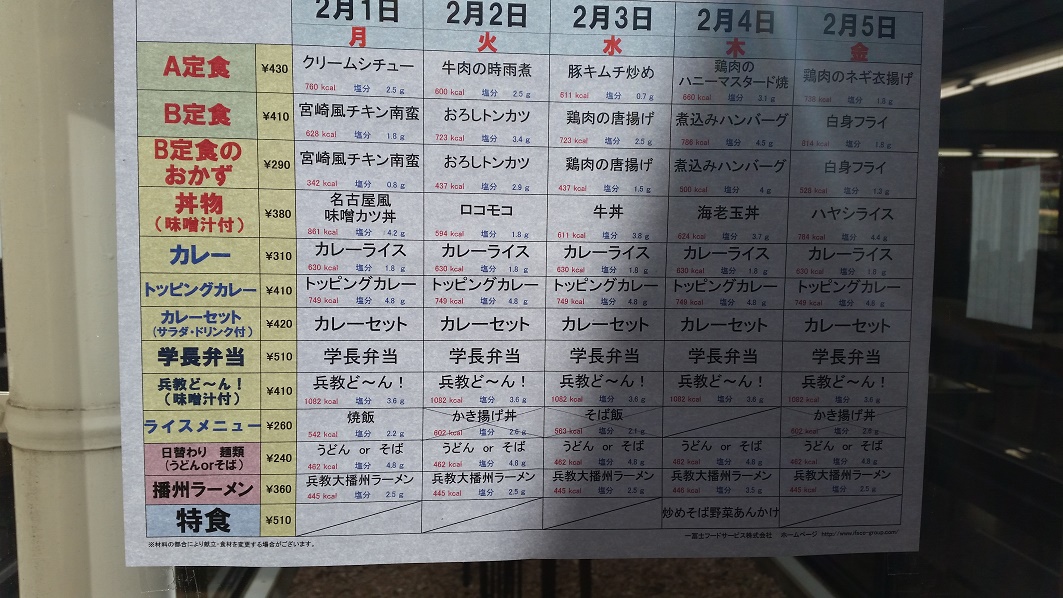 2月1日 2月2日 2月3日 2月4日 2月5日
月 火 水 木 金
A定食 ¥430 クリームシチュー 牛肉の時雨煮 豚キムチ炒め 鶏肉の ハニーマスタード焼 鶏肉のネギ衣揚げ
760 kcal 塩分 2.5 g 600 kcal 塩分 2.5 g 611 kcal 塩分 0.7 g 660 kcal 塩分 3.1 g 塩分
B定食 ¥410 宮崎風チキン南蛮 おろしトンカツ 鶏肉の唐揚げ 煮込みハンバーグ 白身フライ
628 kcal 塩分 1.8 g 723 kcal 塩分 3.4 g 723 kcal 塩分 2.5 g 786 kcal 塩分 4.5 g 814 kcal 塩分 1.8 g
B定食の おかず ¥290 宮崎風チキン南蛮 おろしトンカツ 鶏肉の唐揚げ 煮込みハンバーグ 白身フライ
342 kcal 塩分 0.8 g 437 kcal 塩分 2.9 g 437 kcal 塩分 1.5 g 500 kcal 塩分 4 g 528 kcal 塩分
丼物 (味噌汁付) ¥380 名古屋風 味噌カツ丼 ロコモコ 牛丼 海老玉丼 ハヤシライス
861 kcal 塩分 4.2 g 594 kcal 塩分 1.8 g 611 kcal 塩分 3.8 g 624 kcal 塩分 3.7 g 764 kcal 塩分 4.4 g
カレー ¥310 カレーライス カレーライス カレーライス カレーライス カレーライス
630 kcal 塩分 1.8 g 630 kcal 塩分 1.8 g 630 kcal 塩分 1.8 g 630 kcal 塩分 1.8 g 630 kcal 塩分 1.8 g
トッピングカレー ¥410 トッピングカレー トッピングカレー トッピングカレー トッピングカレー トッピングカレー
749 kcal 塩分 4.8 g 749 kcal 塩分 4.8 g 749 kcal 塩分 4.8 g 749 kcal 塩分 4.8 g 749 kcal 塩分 4.8 g
カレーセット (サラダ・ドリンク付) ¥420 カレーセット カレーセット カレーセット カレーセット カレーセット
学長弁当 ¥510 学長弁当 学長弁当 学長弁当 学長弁当 学長弁当
兵教ど〜ん! (味噌汁付) ¥410 兵教ど〜ん! 兵教ど〜ん! 兵教ど〜ん! 兵教ど〜ん! 兵教ど〜ん!
1082 kcal 塩分 3.6 g 1082 kcal 塩分 3.6 g 1082 kcal 塩分 3.6 g 1082 kcal 塩分 3.6 g 1082 kcal 塩分 3.6 g
ライスメニュー ¥260 焼飯 かき揚げ丼 そば飯 かき揚げ丼
542 kcal 塩分 2.2 g 602 kcal 塩分 2.6 g 563 kcal 塩分 2.1 g 602 kcal 塩分 2.6 g
日替わり 麺類 (うどんorそば) ¥240 うどん or そば うどん or そば うどん or そば うどん or そば うどん or そば
462 kcal 塩分 4.8 g 462 kcal 塩分 4.8 g 462 kcal 塩分 4.8 g 462 kcal 塩分 4.8 g 462 kcal 塩分 4.8 g
播州ラーメン ¥360 兵教大播州ラーメン 兵教大播州ラーメン 兵教大播州ラーメン 兵教大播州ラーメン 兵教大播州ラーメン
445 kcal 塩分 2.5 g 445 kcal 塩分 2.5 g 445 kcal 塩分 2.5 g 塩分 3.5 g 445 kcal 塩分 2.5 g
特食 ¥510 炒めそば野菜あんかけ
※材料の都合により献立・食材を変更する場合がございます。 一冨士フードサービス株式会社 ホームページ http://www.ifoco-group.com/